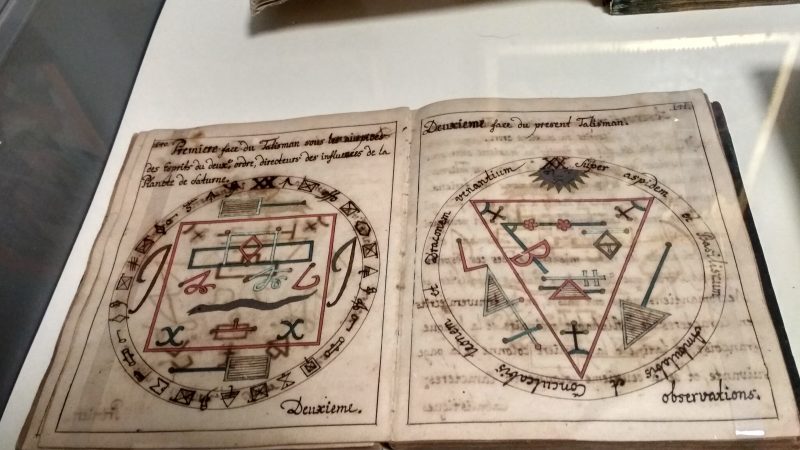 Premiere face du Talisman sous les auspices
des Esprits du deux.e ordre, directeurs des influences de la
Planete de Saturne.
XX
Deuxieme.
Deuxieme face du present Talisman.
XX Super aspidem et Basiliscum ambulabis et Conculcabis leonem et Draconem venantium
observations.